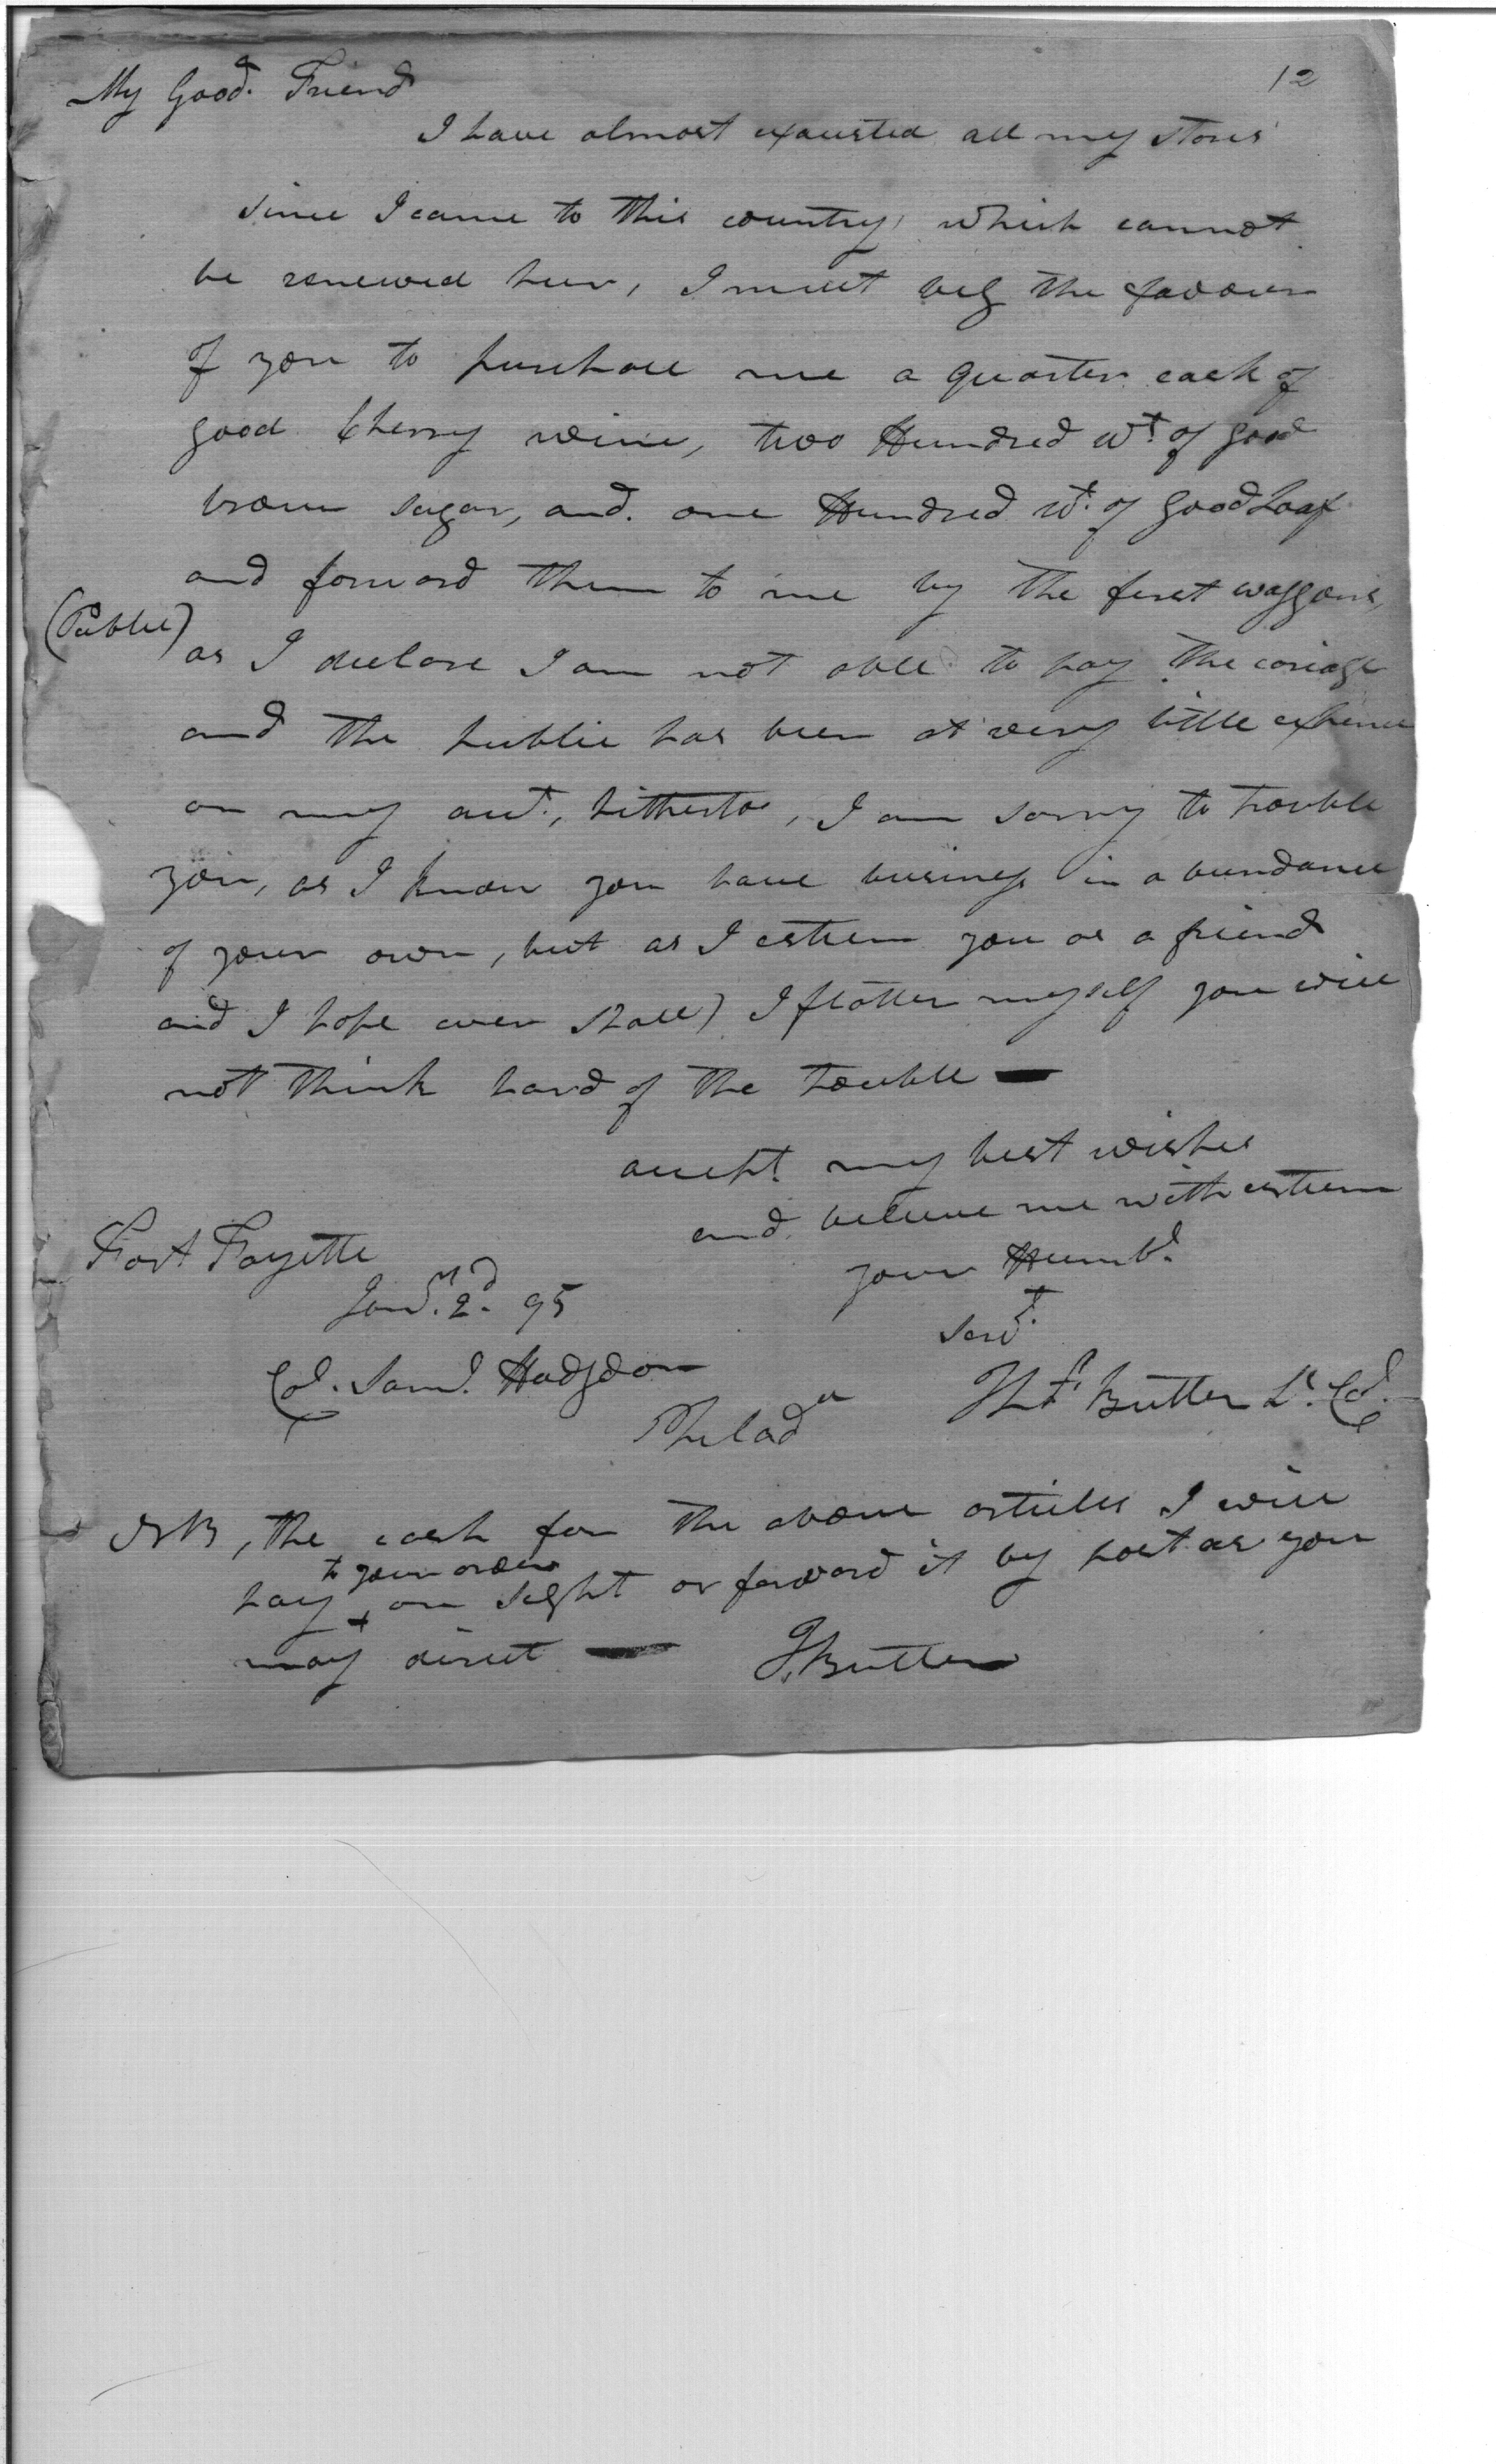 12
My Good. Friend
I have almost exausted all my stores
since I came to this country, which cannot
be renewed heer, I must beg the favour
of you to purchase me a quarter cask of
good Cherry wine, two Hundred Wt. of good
brown sugar, and. one Hundred Wt. of good Loaf
and forward them to me by the first waggons,
(Public)
as I declare I am not able to pay the coriage
and the public has been at very little expence
on my acct., hitherto, I am sorry to trouble
you, as I know you have business in abundance
of your own, but as I esteem you as a friend
and I hope ever shall) I flatter myself you will
not think hard of the trouble —
accept my best wishes
and believe me with esteem
your Humbl.
Servt.
Fort Fayette
Jany. 2d. 95
Col. Saml. Hodgdon
Philada
Ths. Butler Lt. Col.
NB, the cash for the above articles I will
to your order
pay on sight or forward it by post as you
may direct —
T. Butler